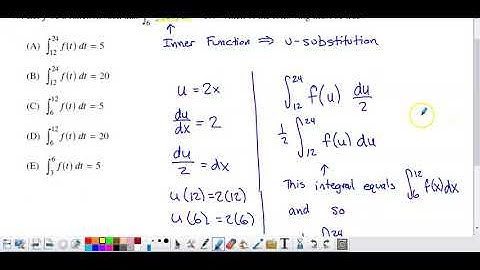 (A) ∫₁₂²⁴ f(t) dt = 5
(B) ∫₁₂²⁴ f(t) dt = 20
(C) ∫₆¹² f(t) dt = 5
(D) ∫₆¹² f(t) dt = 20
(E) ∫₃⁶ f(t) dt = 5
Inner Function ⇒ u-substitution
u = 2x
du/dx = 2
du/2 = dx
u(12) = 2(12)
u(6) = 2(6)
∫₁₂²⁴ f(u) du/2
1/2 ∫₁₂²⁴ f(u) du
This integral equals ∫₆¹² f(x)dx
and so